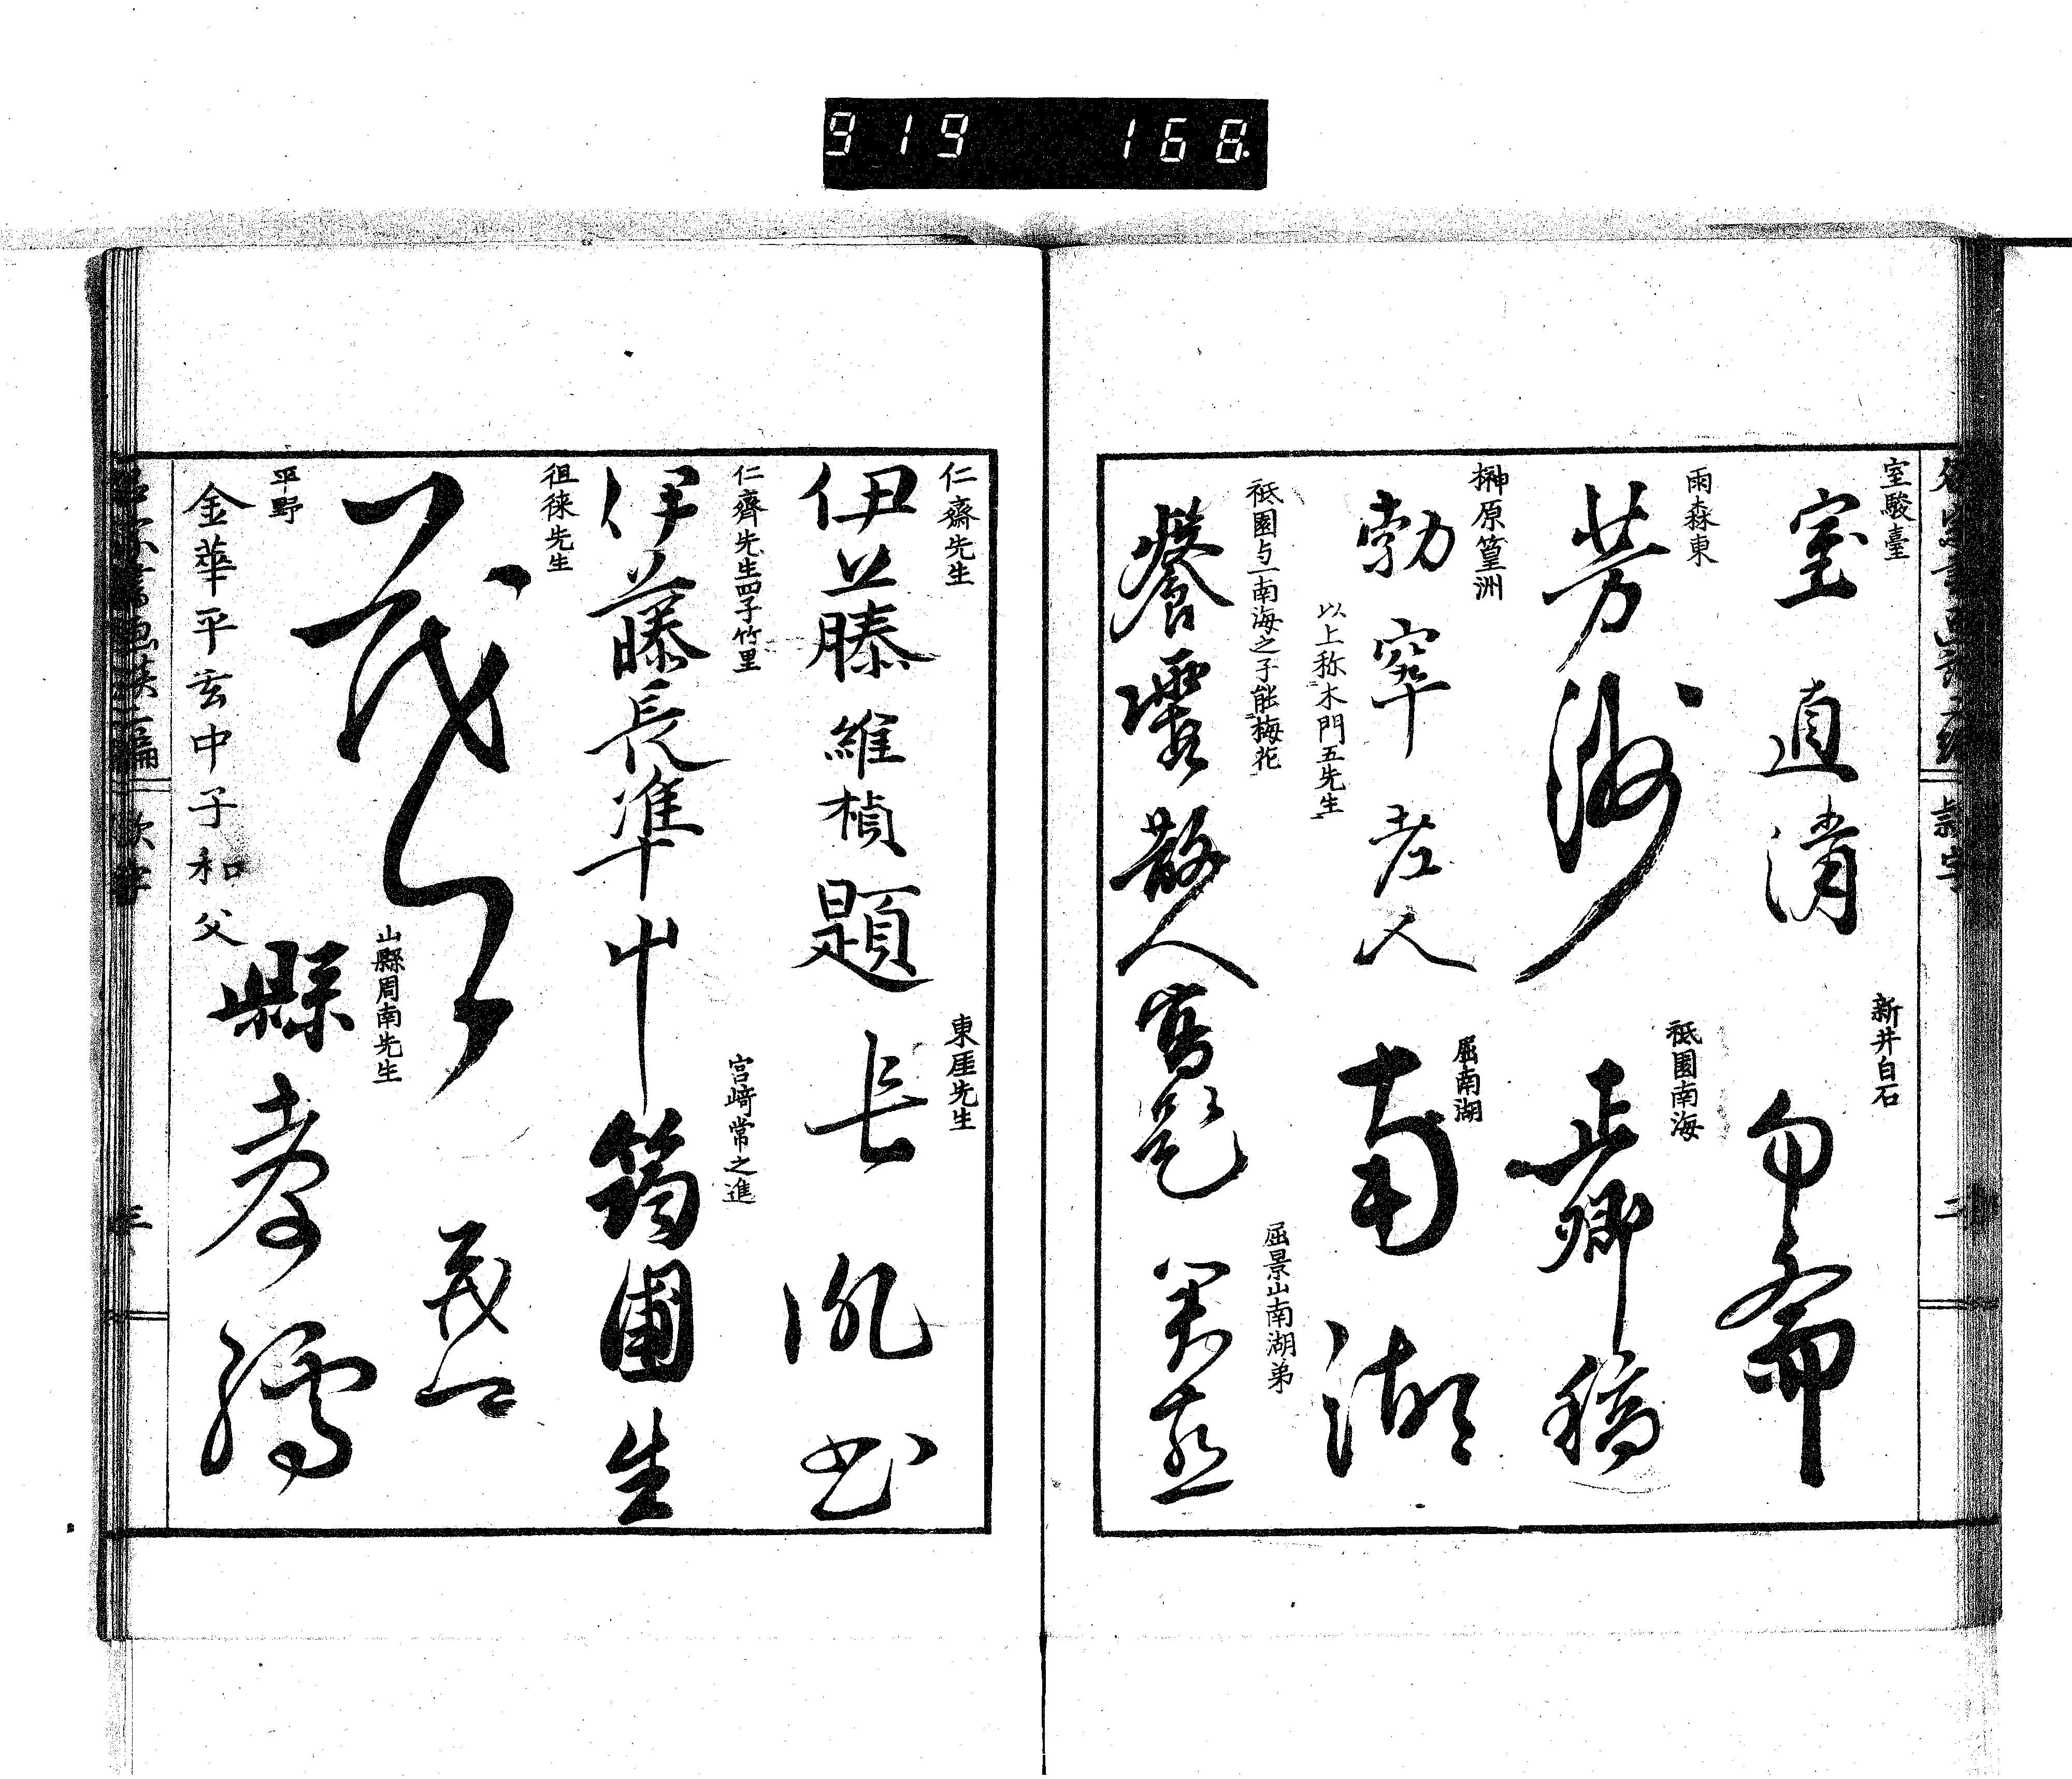 919 168.
室駿臺
室直清
新井白石
勿齋
雨森東
芳洲
祗園南海
正卿稿
榊原篁洲
勃窣老人
以上称木門五先生
屈南湖
南湖
祗園与一南海之子能梅花
餐霞散人寫意
屈景山南湖弟
仁齋先生
伊藤維楨題
東厓先生
長胤書
仁齊先生四子竹里
伊藤長準
宮﨑常之進
筠圃生
徂徠先生
茂卿
茂卿
山縣周南先生
縣孝孺
平野
金華平玄中子和父